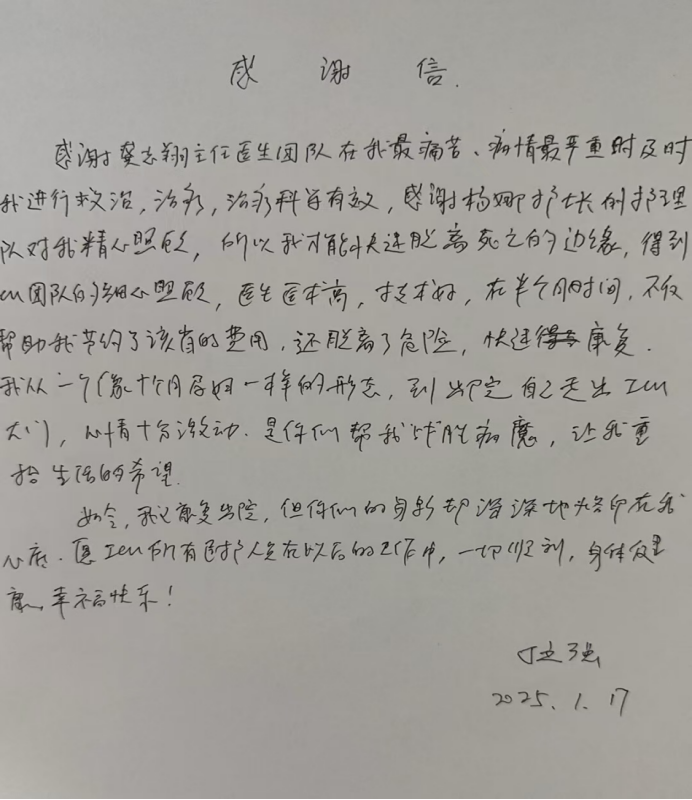 感谢信.
感谢龚志翔主任医生团队在我最痛苦、病情最严重时及时
我进行救治,治疗,治疗科学有效,感谢杨娜护士长的护理
队对我精心照顾,所以我才能快速脱离死亡的边缘,得到
ICU团队的细心照顾,医生医术高,技术好,在半个月时间,不仅
帮助我节约了该省的费用,还脱离了危险,快速康复.
我从一个像十个月孕妇一样的形态,到出院自己走出ICU
大门,心情十分激动.是你们帮我战胜病魔,让我重
拾生活的希望.
如今,我已康复出院,但你们的身影却深深地烙印在我
心底.愿ICU所有医护人员在以后的工作中,一切顺利,身体健
康,幸福快乐!
强
2025.1.17